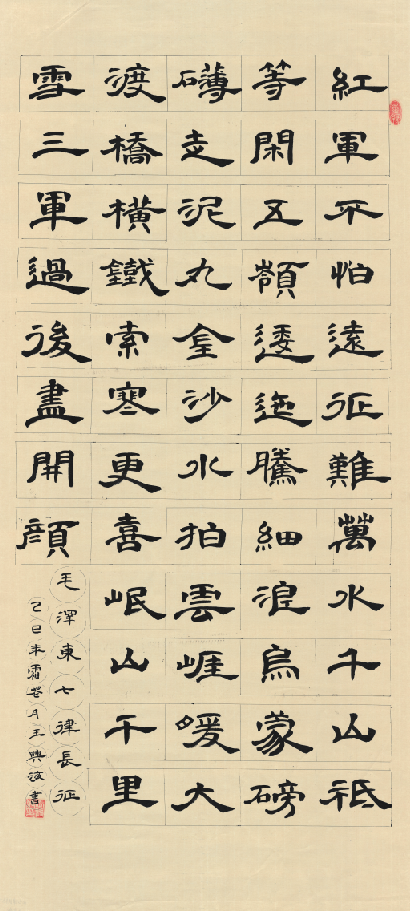 紅軍不怕遠征難萬水千山祗
等閑五嶺逶迤騰細浪烏蒙磅
礴走泥丸金沙水拍雲崕暖大
渡橋橫鐵索寒更喜岷山千里
雪三軍過後盡開顏
毛澤東七律長征
巳年霜月王興書